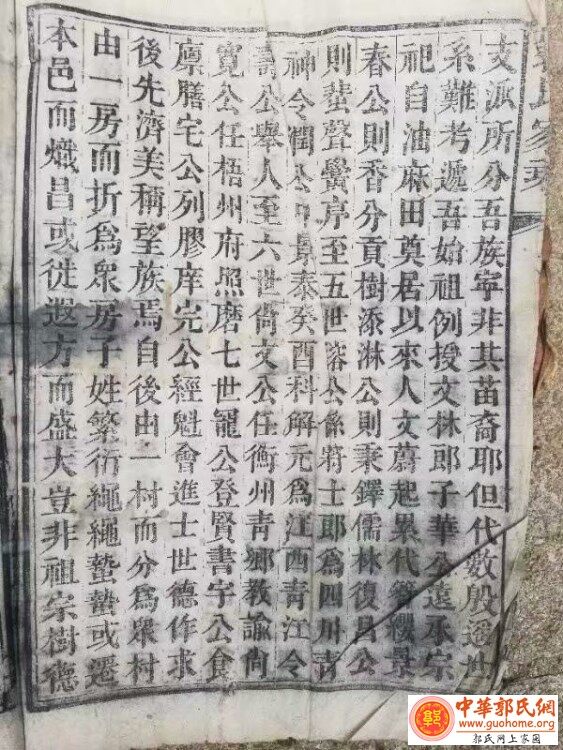 氏家
支派所分吾族寧非其苗裔耶但代數殷遥
系難考遞吾始祖例授文林郎子華公遠承宗
祀自油麻田奠居以來人文蔚起累代簪纓景
春公則香分貢樹添淋公則秉鐸儒林復昌公
則蜚聲黌序至五世容公係將士郎爲四川青
神令潤公中景泰癸酉科解元爲江西青江令
壽公舉人至六世尚文公任衡州青鄉教諭尚
寛公任梧州府照磨七世寵公登賢書宇公食
廪膳宅公列膠庠完公經魁會進士世德作求
後先濟美稱望族焉自後由一村而分爲眾村
由一房而折爲衆房子姓繁衍繩繩蟄蟄或遷
本邑而熾昌或徙遐方而盛大豈非祖宗樹德
中華郭氏網
www.guohome.org
郭氏网上家園